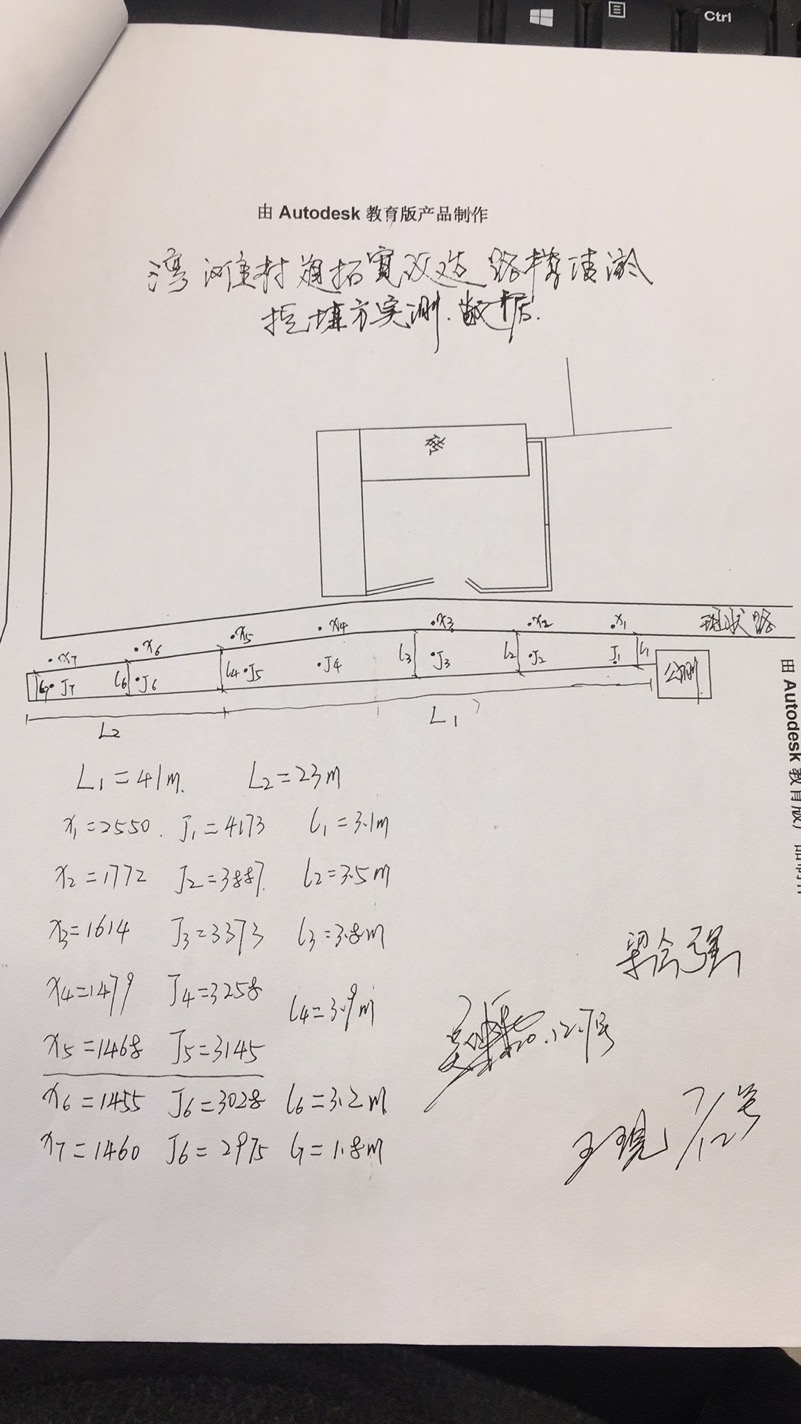 Ctrl
由 Autodesk 教育版产品制作
湾滩村道拓宽改造
挖填方实测数据.
x7 x6 x5 x4 x3 x2 x1 现状路
l7 J7 l6 J6 l4 J5 J4 l3 J3 l2 J2 J1 l1 公厕
由 Autodesk 教育版产品制作
L2 L1
L1=41m. L2=23m
x1=2550. J1=4173 l1=3.1m
x2=1772 J2=3887. l2=3.5m
x3=1614 J3=3373 l3=3.8m
x4=1479 J4=3258 l4=3.9m
x5=1468 J5=3145
x6=1455 J6=3028 l6=3.2m
x7=1460 J6=2975 l7=1.8m
20.12.7号
7/12号